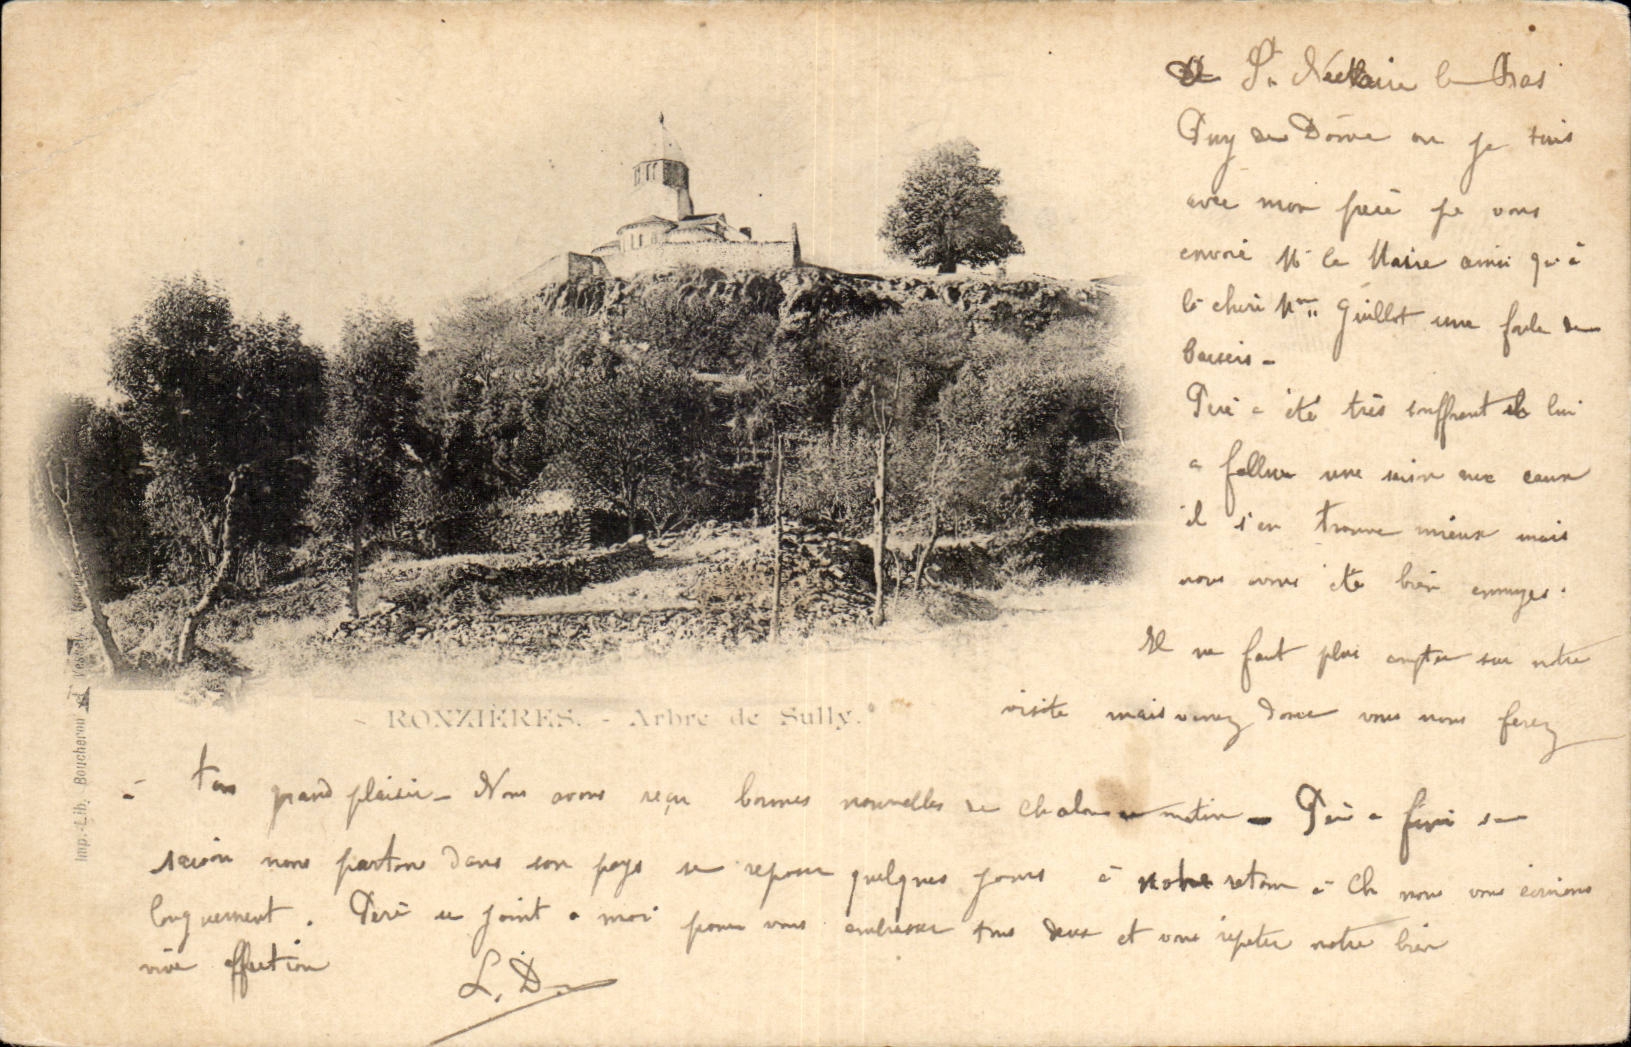 De St Nectaire le Bas
Puy de Dôme ou je suis
avec mon père je vous
envoie Mr le Maire ainsi qu'à
la chère Mme Guillot une foule de
baisers -
Père a été très souffrant il lui
a fallu une saison aux eaux
il s'en trouve mieux mais
nous avons été bien ennuyés.
Il ne faut plus compter sur notre
visite mais venez donc vous nous ferez
RONZIÈRES. - Arbre de Sully.
à tous grand plaisir - Nous avons reçu bonnes nouvelles de Chalon ce matin - Père a fini sa
saison nous partons dans son pays se reposer quelques jours à notre retour à Ch nous vous écrirons
longuement. Père se joint a moi pour vous embrasser tous deux et vous répéter notre bien
vive affection
L. D.
Imp.-Lib. Boucheron